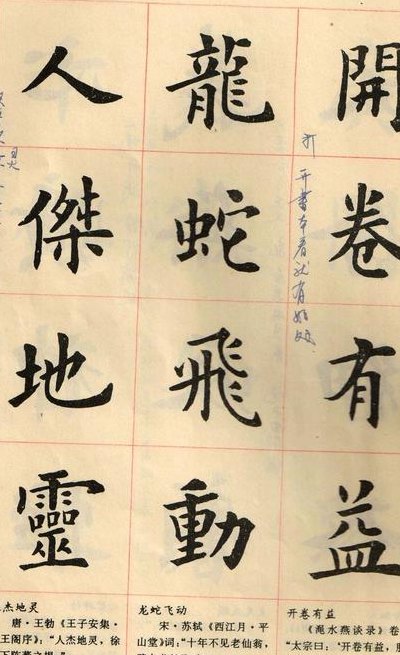 開卷有益
龍蛇飛動
人傑地靈
打
开書本看就有好处
灵
开卷有益
《渑水燕谈录》卷
“太宗曰：‘开卷有益，
龙蛇飞动
宋·苏轼《西江月·平
山堂》词：“十年不见老仙翁，
杰地灵
唐·王勃《王子安集·
王阁序》：“人杰地灵，徐